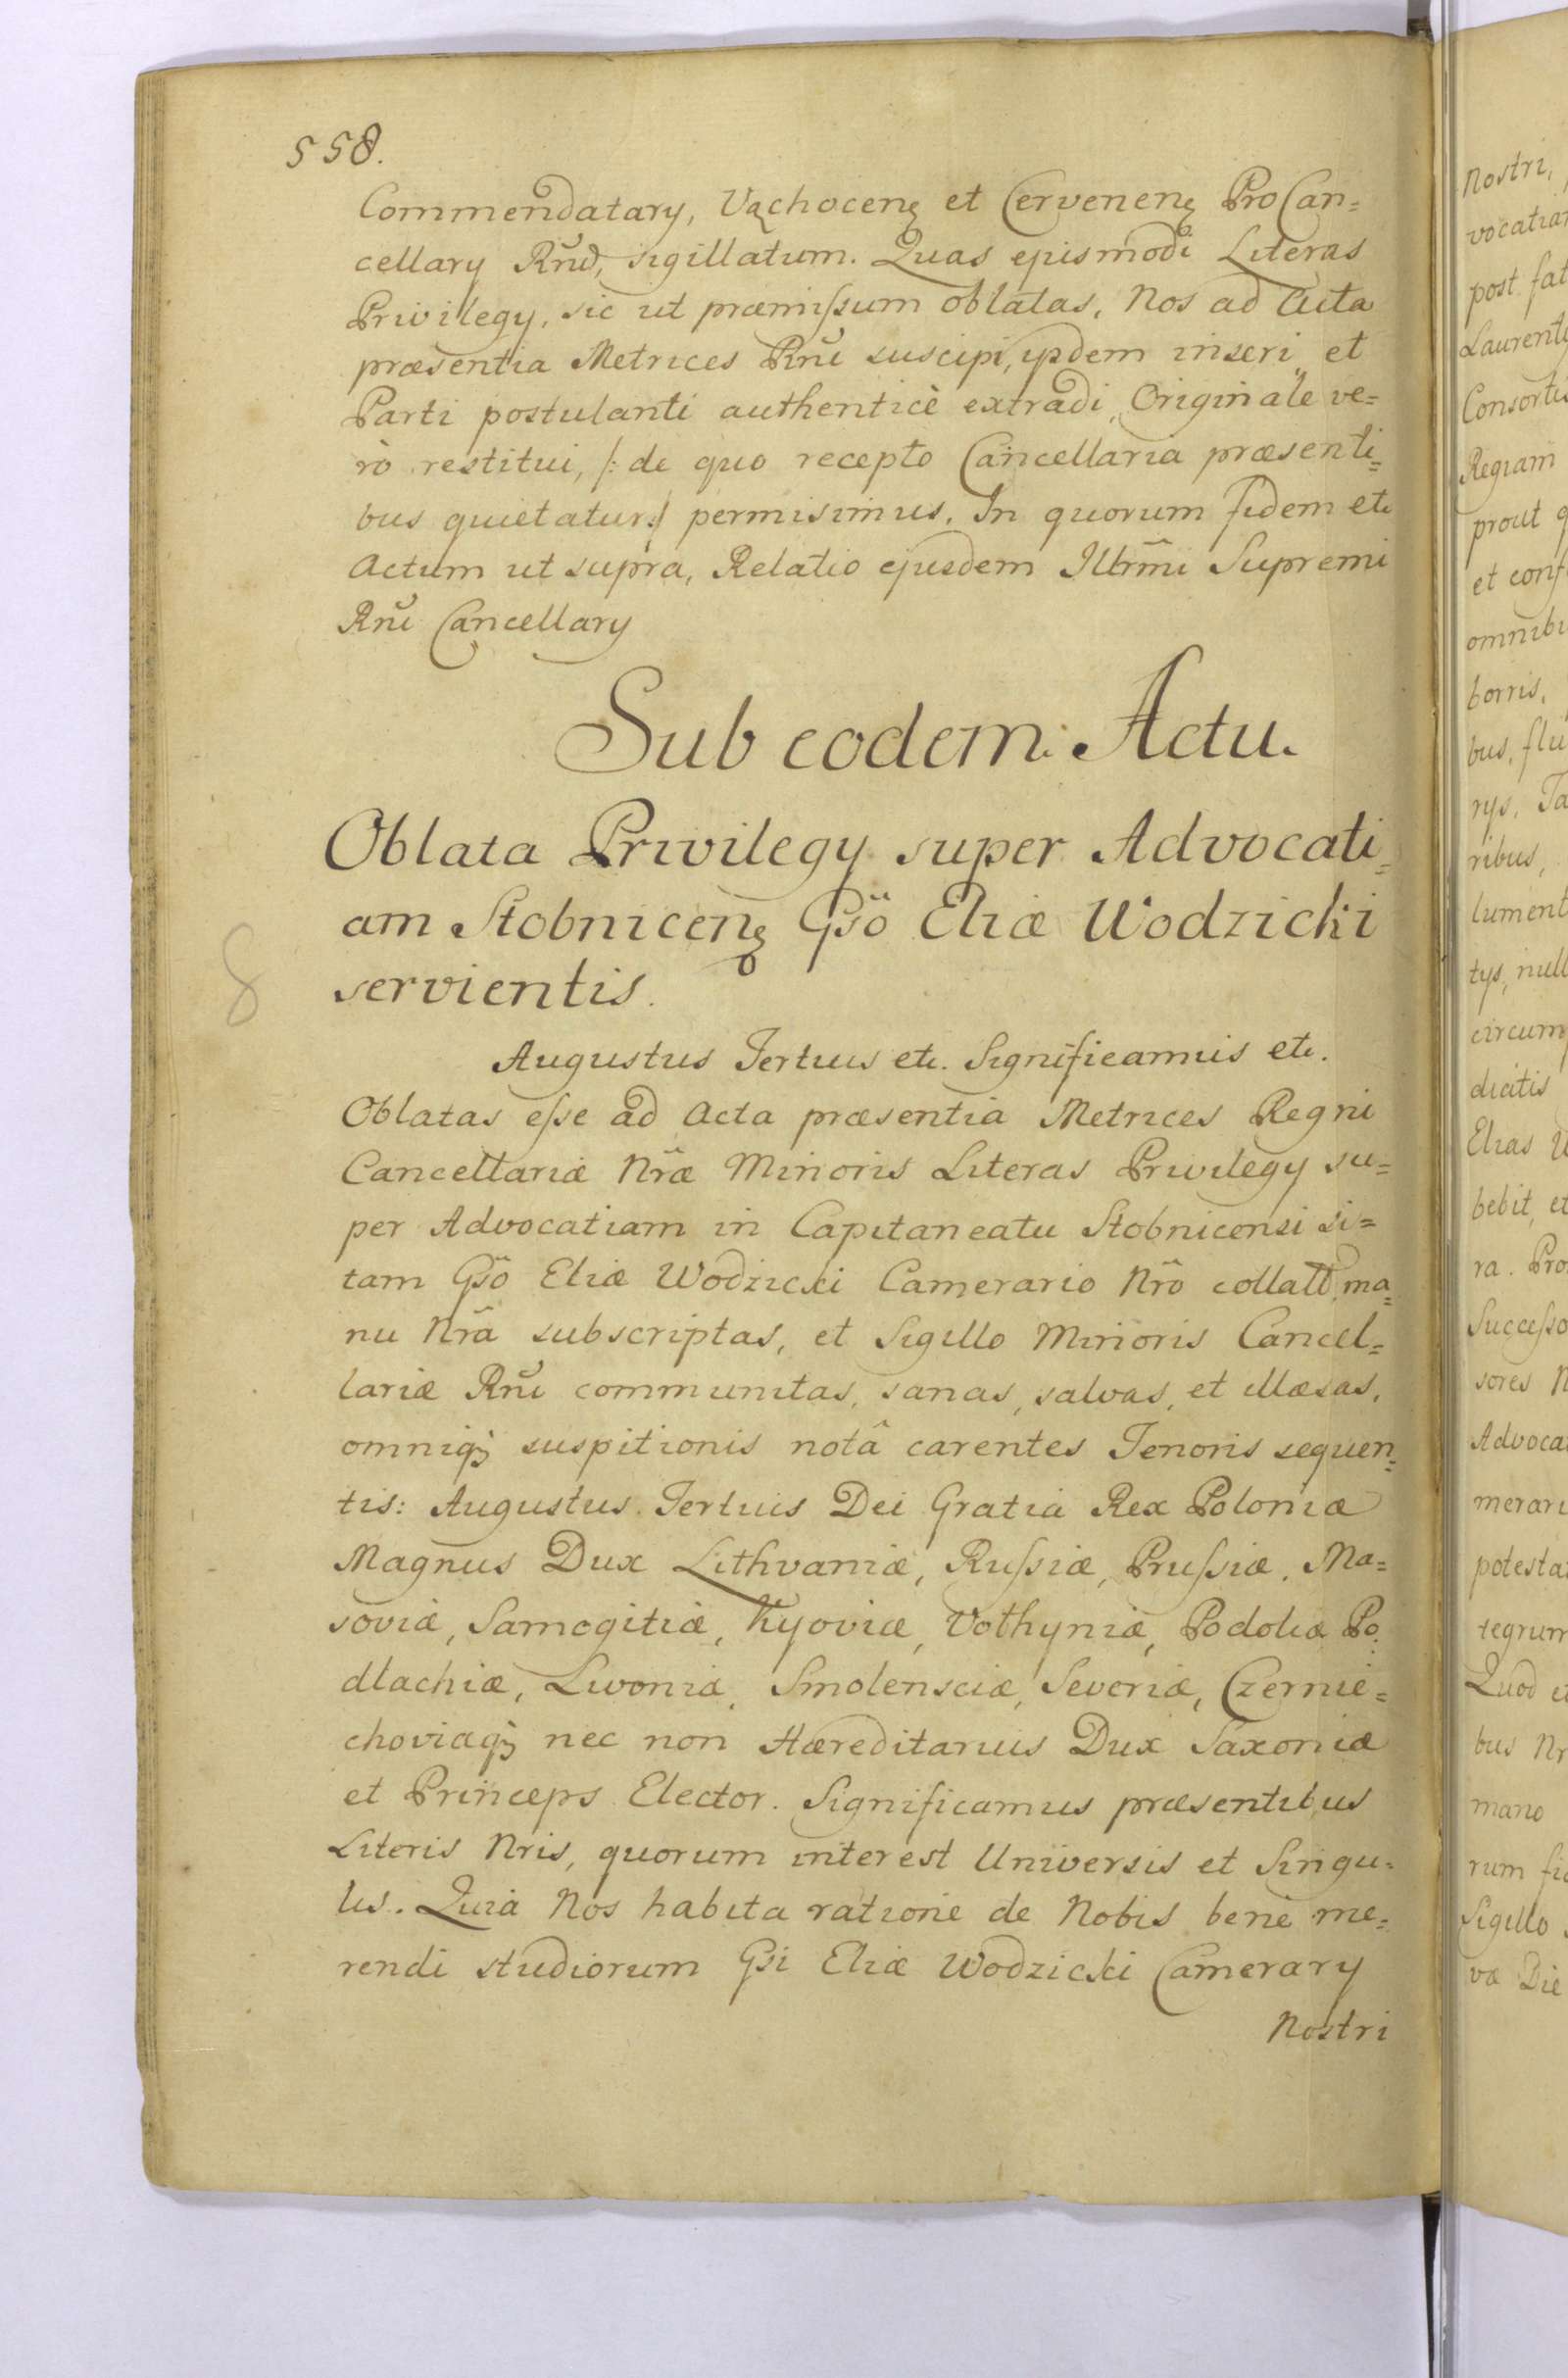 558.
Commendatary, Vąchocenȩ et Cervenenȩ ProCan=
cellary Rnũ, sigillatum. Quas ejusmodi Literas
Privilegy, sic ut præmiſsum oblatas, Nos ad Acta
præsentia Metrices Rnĩ suscipi, ijsdem inseri, et
Parti postulanti authenticè extradi, Originale ve=
rò restitui, /: de quo recepto Cancellaria præsenti=
bus quietatur :/ permisimus. In quorum fidem etc
Actum ut supra, Relatio ejusdem Illrm̃i Supremi
Rnĩ Cancellary
Sub eodem Actu.
Oblata Privilegy super Advocati=
am Stobnicenȩ Gsõ Eliæ Wodzicki
servientis.
Augustus Tertius etc. Significamus etc.
Oblatas eſse ad Acta præsentia Metrices Regni
Cancellariæ Nr̃æ Minoris Literas Privilegy su=
per Advocatiam in Capitaneatu Stobnicensi si=
tam Gsõ Eliæ Wodzicki Camerario Nrõ collatt. ma=
nu Nrã subscriptas, et Sigillo Minoris Cancel=
lariæ Rnĩ communitas, sanas, salvas, et illæsas,
omniq; suspitionis notâ carentes Tenoris sequen=
tis: Augustus Tertius Dei Gratia Rex Poloniæ
Magnus Dux Lithvaniæ, Ruſsiæ, Pruſsiæ, Ma=
soviæ, Samogitiæ, Kyoviæ, Volhyniæ, Podoliæ Po
dlachiæ, Livoniæ, Smolensciæ, Severiæ, Czernie=
choviæq; nec non Hæreditarius Dux Saxoniæ
et Princeps Elector. Significamus præsentibus
Literis Nris, quorum interest Universis et Singu=
lis. Quia Nos habita ratione de Nobis bene me=
rendi studiorum Gsi Eliæ Wodzicki Camerary
Nostri
8
Nostri,
vocatia
post fat
Laurenti
Consortis
Regiam
prout q
et conf
omnibu
borris,
bus, flu
rys, Ta
ribus,
lument
tys, null
circum
dictis
Elias W
bebit, et
ra. Pro
Succeſso
sores N
Advoca
merari
potesta
tegrum
Quod et
bus Nr
mano
rum fid
Sigillo
væ Die